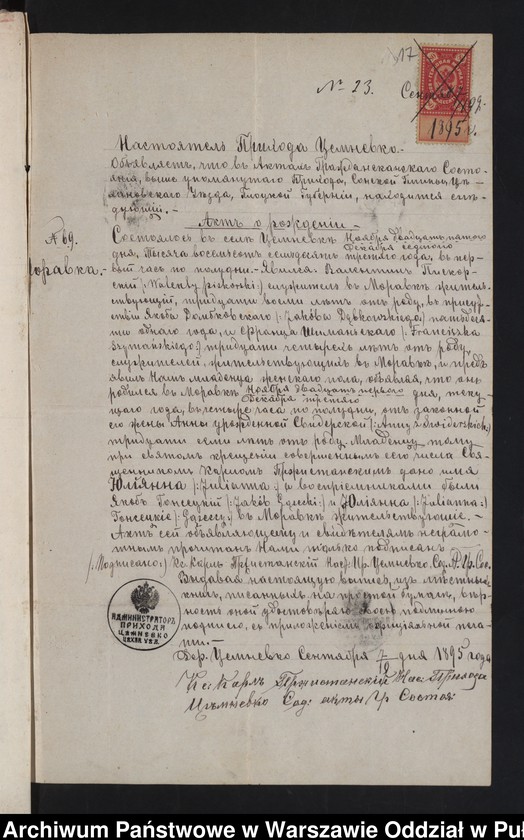 17
№ 23.
Сентяб
1895 г.
Настоятель Прихода Цемневко.
Объявляетъ, что въ Актахъ Гражданскаго Состо-
янія, выше упомянутаго Прихода, Сонской Гмины, Цѣ-
хановскаго Уѣзда, Плоцкой Губерніи, находится слѣ-
дующій. —
Актъ о рожденіи —
№ 69.
Моравка. —
Состоялось въ селѣ Цемневкѣ Ноября двадцать пятаго
Декабря седьмого
дня, Тысяча восемьсотъ семьдесятъ третьяго года, въ пер-
вый часъ по полудни. — Явился Валентинъ Піекор-
скій /: Walenty Piekorski :/ служитель въ Моравкѣ житель-
ствующій, тридцати восьми лѣтъ отъ роду, въ присут-
ствіи Якова Домбковскаго /: Jakóba Dąbkowskiego :/ пятидеся-
ти однаго года, и Франца Шиманскаго /: Franciszka
Szymańskiego :/ тридцати четырехъ лѣтъ отъ роду,
служителей, жительствующихъ въ Моравкѣ, и предъ-
явилъ Намъ младенца женскаго пола, объявляя, что онъ
родился въ Моравкѣ Ноября двадцать перваго
Декабря третьяго
дня, теку-
щаго года, въ четыре часа по полудни, отъ законной
его жены Анны урожденной Свидерской /: Anny z Świderskich :/
тридцати семи лѣтъ отъ роду. Младенцу тому
при святомъ крещеніи совершенномъ сего числа Свя-
щенникомъ Карломъ Пржистанскимъ дано имя
Юліянна /: Julianna :/ а воспріемниками были
Яковъ Гонсецкій /: Jakób :/ и Юліянна /: Julianna :/
Гонсецкіе въ Моравкѣ жительствующіе. —
Актъ сей объявляющему и свидѣтелямъ негра-
мотнымъ прочитанъ Нами только подписанъ —
/: Подписано :/ Кс. Карлъ Пржистанскій Наст. Пр. Цемневко, Сод. А. Гр. Сос.
Выдавая настоящую выпись, изъ мѣстныхъ
книгъ, писанный на простой бумагѣ, вѣр-
ность оной удостовѣряю своею личною
подписью, съ приложеніемъ формальной печа-
ти. —
АДМИНИСТРАТОРЪ
ПРИХОДА
ЦЕМНЕВКО
ЦѢХАН. УѢЗ.
Дер. Цемневко Сентября 7/19 дня 1895 года
Кс: Карлъ Пржистанскій Нас. Прихода
Цемневко Сод: акты Гр Состоя:
Archiwum Państwowe w Warszawie Oddział w Puł